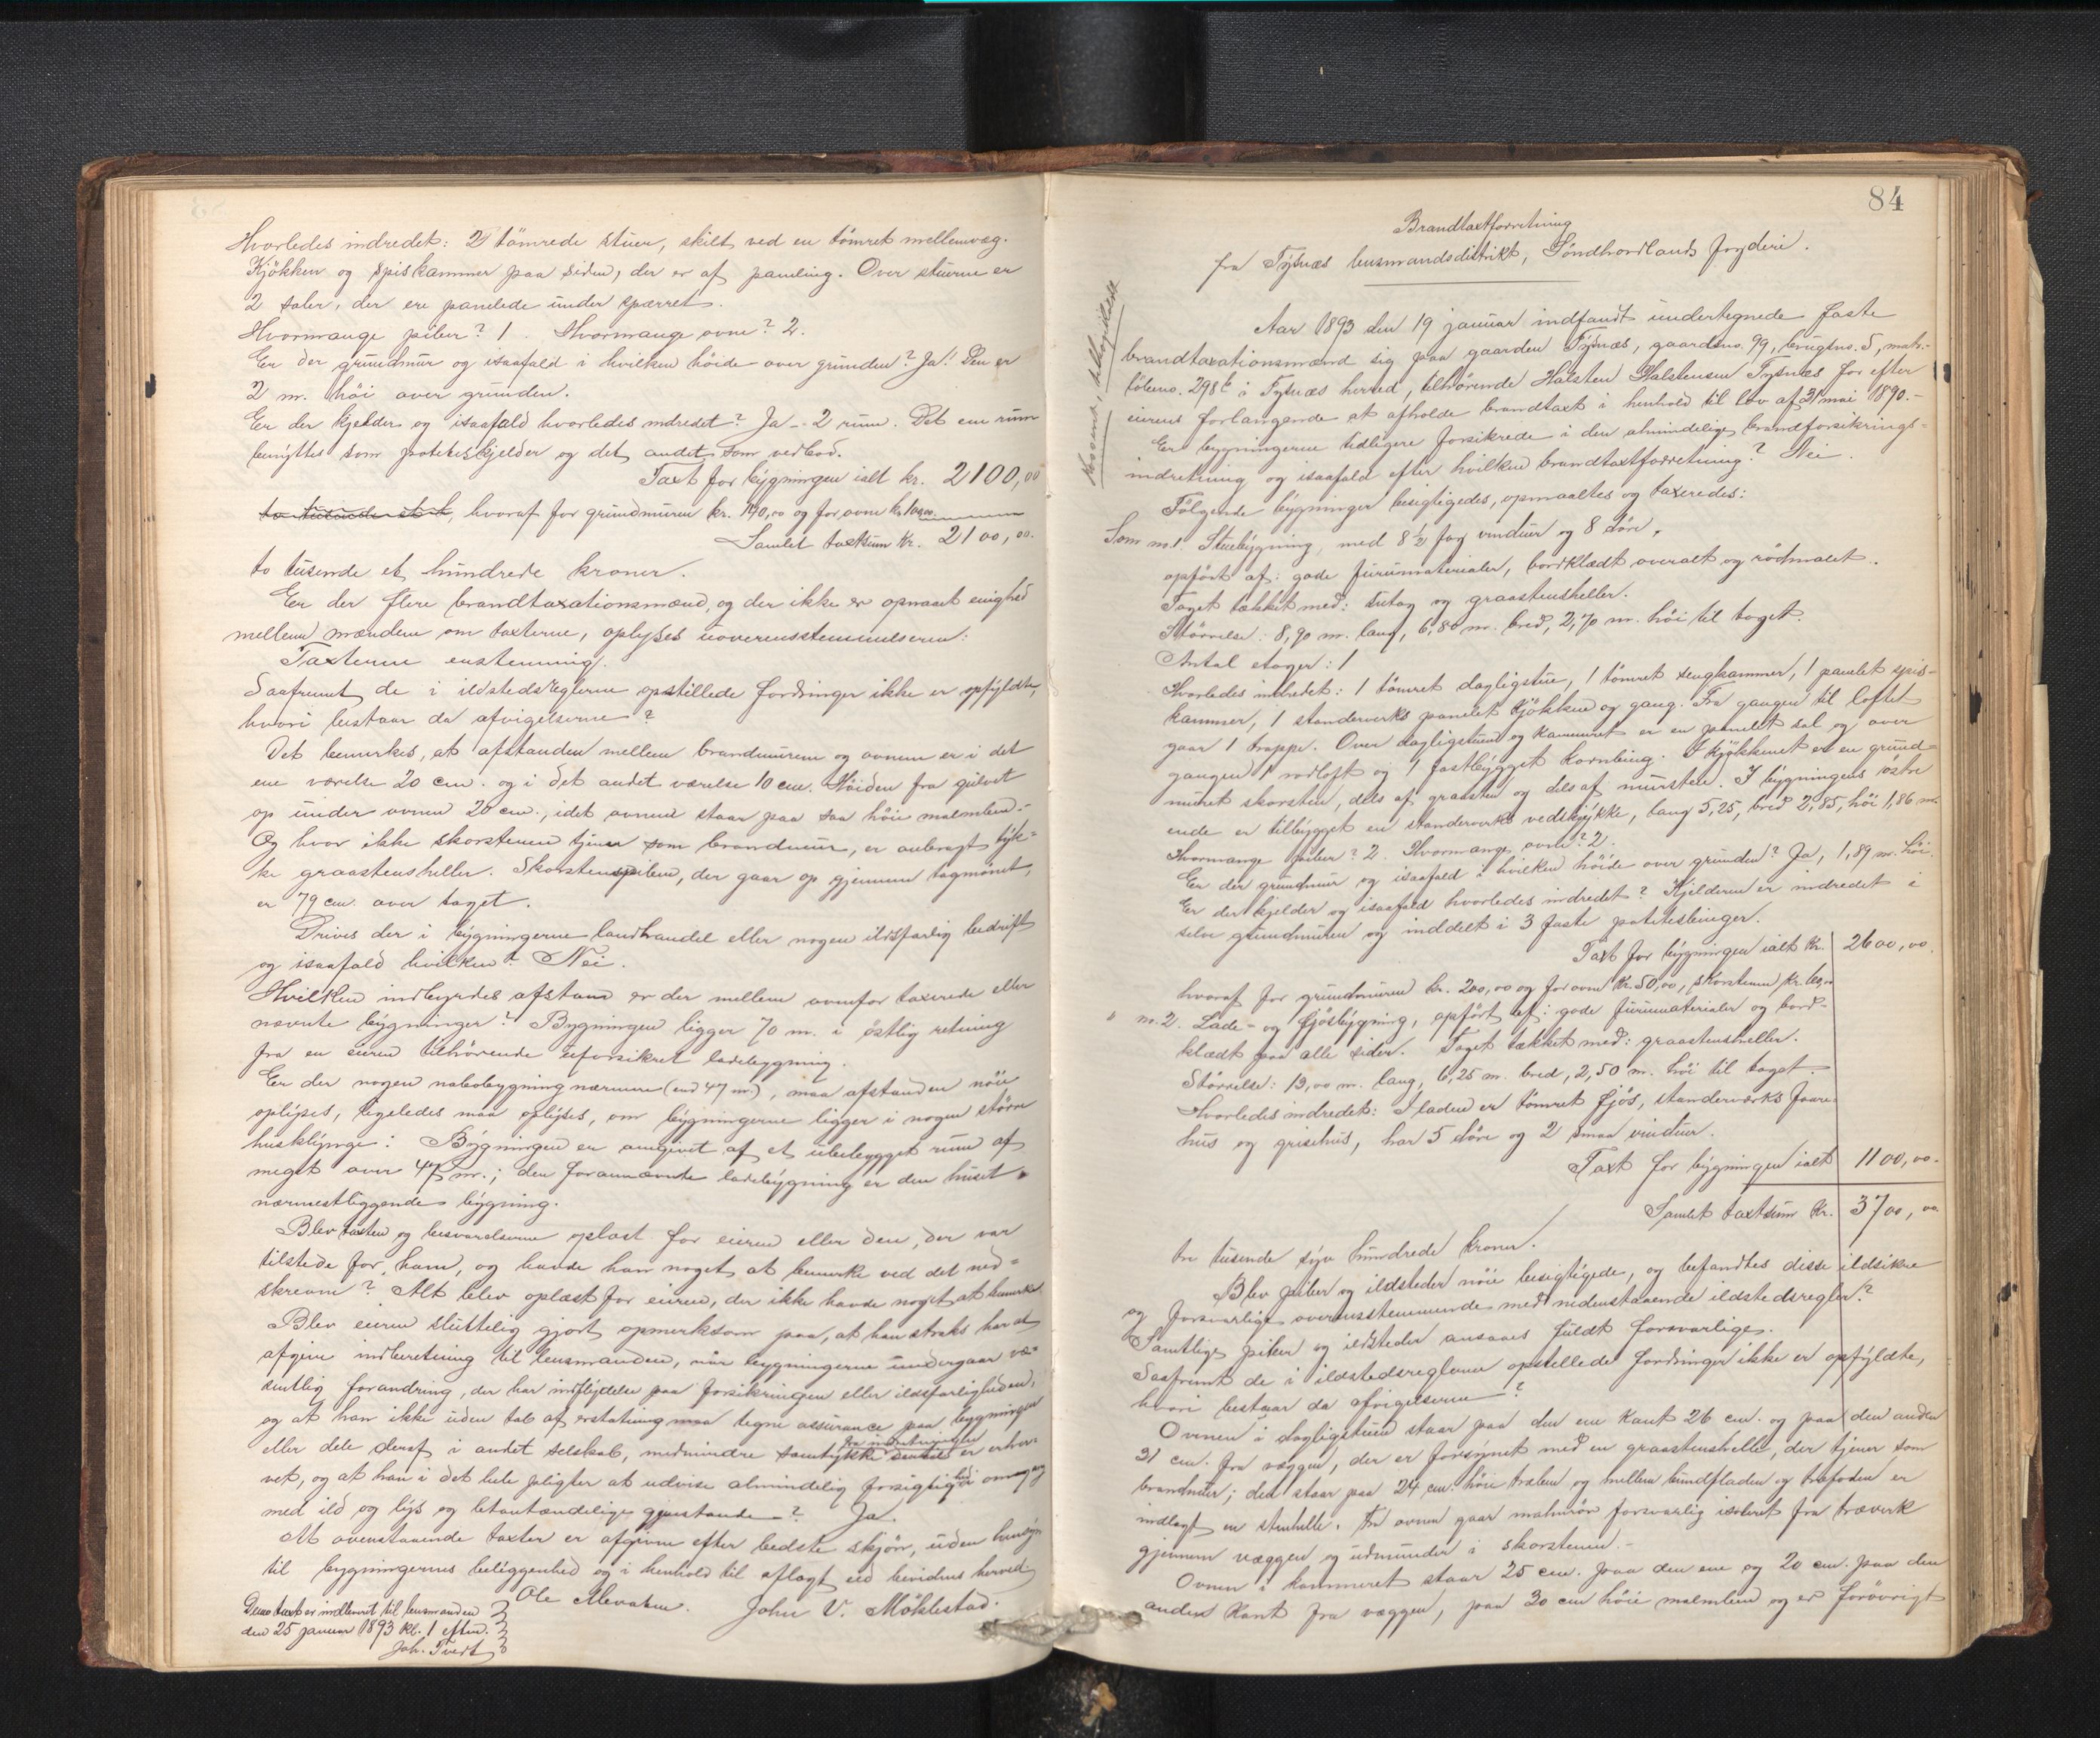 Hvorledes indredet: 2 tömrede stuer, skilt ved en tömret mellemvæg.
Kjökken og spiskammer paa siden, der er af paneling. Over stuerne er
2 saler, der ere panelede under spærret.
Hvormange piber? 1. Hvormange ovne? 2.
Er der grundmur og isaafald i hvilken höide over grunden? Ja! Den er
2 m. höi over grunden.
Er der kjelder og isaafald hvorledes indredet? Ja - 2 rum. Det ene rum
benyttes som poteteskjelder og det andet som vedbod.
Taxt for bygningen ialt kr. 2100,00
to tusinde et h, hvoraf for grundmuren kr. 140,00 og for ovne kr. 100,00
Samlet taxtsum kr. 2100,00.
to tusinde et hundrede kroner.
Er der flere brandtaxationsmænd, og der ikke er opnaaet enighed
mellem mændene om taxterne, oplyses uoverensstemmelserne:
Taxterne enstemmig.
Saafremt de i ildstedsreglerne opstillede fordringer ikke er opfyldte,
hvori bestaar da afvigelserne?
Det bemerkes, at afstanden mellem brandmuren og ovnene er i det
ene værelse 20 cm. og i det andet værelse 10 cm. Höiden fra gulvet
op under ovnen 20 cm., idet ovnene staar paa saa höie malmben.-
Og hvor ikke skorstenen tjener som brandmur, er anbragt tyk-
ke graastensheller. Skorstenspiben, der gaar op gjennem tagmönet,
er 79 cm. over taget.
Drives der i bygningerne landhandel eller nogen ildsfarlig bedrift
og isaafald hvilken? Nei.
Hvilken indbyrdes afstand er der mellem ovenfor taxerede eller
nævnte bygninger? Bygningen ligger 70 m. i östlig retning
fra en eieren tilhörende uforsikret ladebygning.
Er der nogen nabobygning nærmere (end 47 m), maa afstanden nöie
oplyses, ligeledes maa oplyses, om bygningerne ligger i nogen större
husklynge: Bygningen er omgivet af et ubebygget rum af
meget over 47 m.; den forannævnte ladebygning er den huset
nærmestliggende bygning.
Blev taxten og besvarelserne oplæst for eieren eller den, der var
tilstede for ham, og havde han noget at bemerke ved det ned-
skrevne? Alt blev oplæst for eieren, der ikke havde noget at bemerke.
Blev eieren sluttelig gjort opmerksom paa, at han straks har at
afgive indberetning til lensmanden, når bygningerne undergaar væ-
sentlig forandring, der har indflydelse paa forsikringen eller ildsfarligheden;
og at han ikke uden tab af erstatning maa tegne assurance paa bygningen
eller dele deraf i andet selskab, medmindre samtykke fra indretningen er erhver-
vet, og at han i det hele pligter at udvise almindelig forsigtighed i omgang
med ild og lys og letantændelige gjenstande? Ja.
At ovenstaaende taxter er afgivne efter bedste skjön, uden hensyn
til bygningernes beliggenhed og i henhold til aflagt ed bevidnes herved
Ole Mevatne. John V. Möklestad.
Denne taxt er indleveret til lensmanden
den 25 januar 1893 kl. 1 efterm.
Joh. Tvedt
84
Brandtaxtforretning
fra Tysnæs lensmandsdistrikt, Söndhordlands fogderi.
Aar 1893 den 19 januar indfandt undertegnede faste
brandtaxationsmænd sig paa gaarden Tysnæs, gaardsno. 99, brugsno. 5, matr.-
löbeno. 298c i Tysnæs herred, tilhörende Halsten Halstensen Tysnæs for efter
eierens forlangende at afholde brandtaxt i henhold til lov af 31 mai 1890.-
Er bygningerne tidligere forsikrede i den almindelige brandforsikrings-
indretning og isaafald efter hvilken brandtaxtforretning? Nei.
Fölgende bygninger besigtigedes, opmaaltes og taxeredes:
Som no. 1. Stuebygning, med 8½ fag vinduer og 8 döre,
opfört af: gode furumaterialer, bordklædt overalt og rödmalet.
Taget tækket med: tretag og graastensheller.
Störrelse: 8,90 m. lang, 6,80 m. bred, 2,70 m. höi til taget.
Antal etager: 1
Hvorledes indredet: 1 tömret dagligstue, 1 tömret sengkammer, 1 panelet spis-
kammer, 1 standerverks panelet kjökken og gang. Fra gangen til loftet
gaar 1 trappe. Over dagligstuen og kammeret er en panelet sal og over
gangen 1 rodloft og 1 fastbygget kornbing. I kjökkenet er en grund-
muret skorsten, dels af graasten og dels af mursten. I bygningens östre
ende er tilbygget en standerverks vedskykke, lang 5,25, bred 2,85, höi 1,86 m.
Hvormange piber? 2. Hvormange ovne? 2.
Er der grundmur og isaafald i hvilken höide over grunden? Ja, 1,89 m. höi.
Er der kjelder og isaafald hvorledes indredet? Kjelderen er indredet i
selve grundmuren og inddelt i 3 faste potetesbinger.
Taxt for bygningen ialt kr. 2600,00.
hvoraf for grundmuren kr. 200,00 og for ovne kr. 50,00, skorstenen kr.
" no. 2. Lade- og fjösbygning, opfört af: gode furumaterialer og bord-
klædt paa alle sider. Taget tækket med: graastensheller.
Störrelse: 13,00 m. lang, 6,25 m. bred, 2,50 m. höi til taget.
Hvorledes indredet: I laden er tömret fjös, standerværks faare-
hus og grisehus, har 5 döre og 2 smaa vinduer.
Taxt for bygningen ialt 1100,00.
Samlet taxtsum kr. 3700,00
tre tusende syv hundrede kroner.
Blev piber og ildsteder nöie besigtigede, og befandtes disse ildsikre
og forsvarlige overensstemmende med nedenstaaende ildstedsregler?
Samtlige piber og ildsteder ansaaes fuldt forsvarlige.
Saafremt de i ildstedsreglerne opstillede fordringer ikke er opfyldte,
hvori bestaar da afvigelserne?
Ovnen i dagligstuen staar paa den ene kant 26 cm. og paa den anden
31 cm. fra væggen, der er forsynet med en graastenshelle, der tjener som
brandmur; den staar paa 24 cm. höie træben og mellem bundfladen og træfoden er
indlagt en stenhelle. Fra ovnen gaar malmrör forsvarlig isoleret fra træverk
gjennem væggen og udmunder i skorstenen.-
Ovnen i kammeret staar 25 cm. paa den ene og 20 cm. paa den
anden kant fra væggen, paa 30 cm höie malmben og er forövrigt